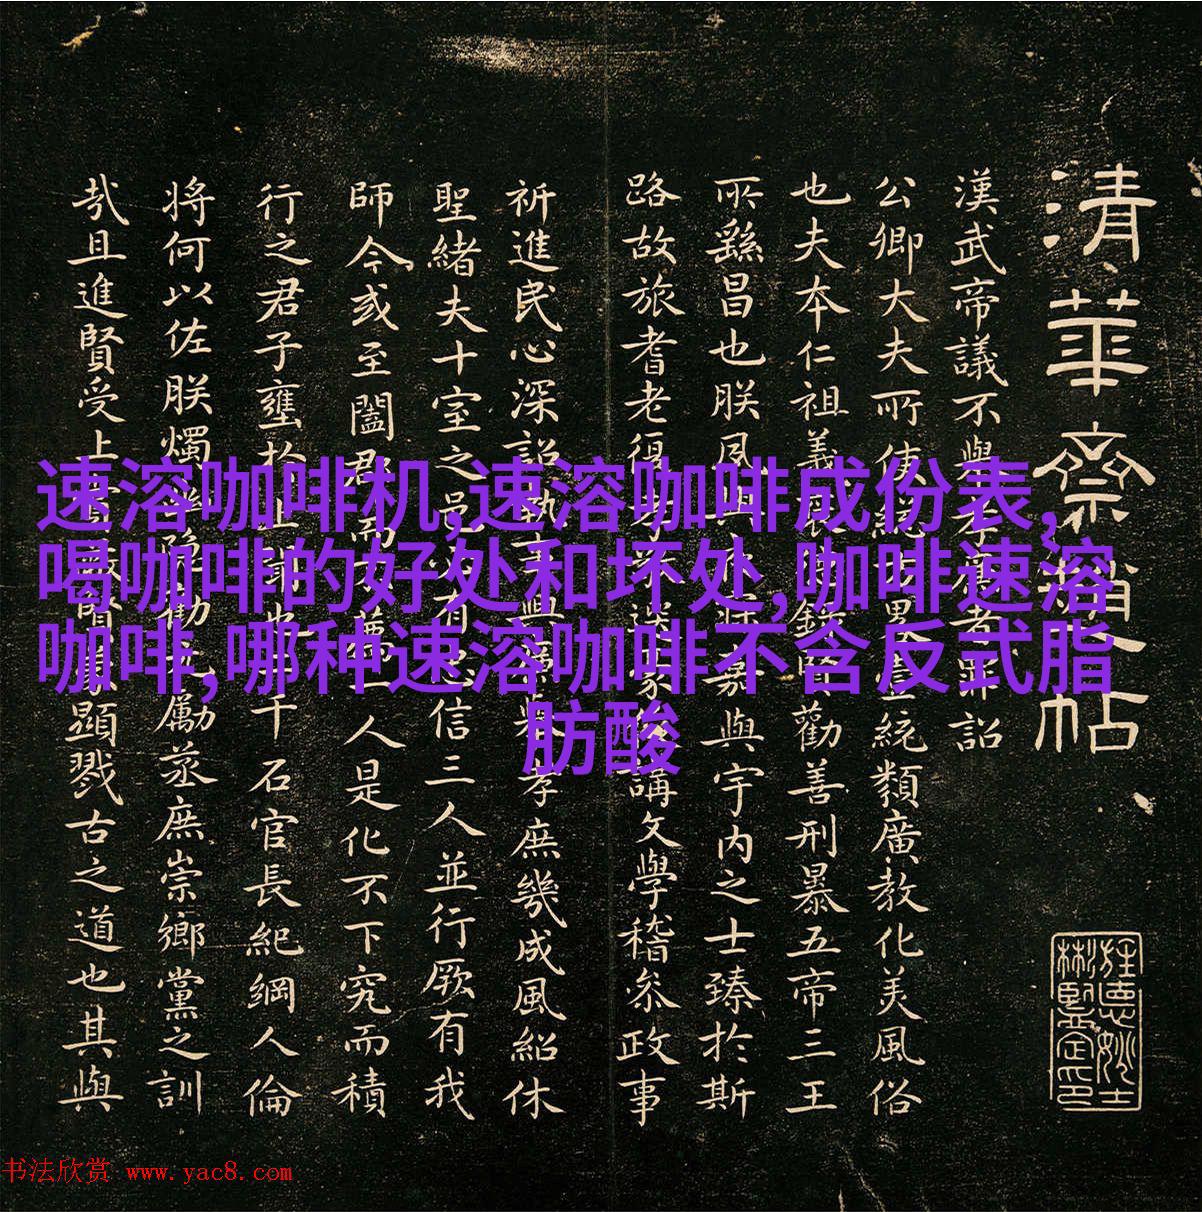 速溶咖啡机,速溶咖啡成份表,
喝咖啡的好处和坏处,咖啡速溶
咖啡,哪种速溶咖啡不含反式脂
肪酸
清華齋帖
漢武帝議不舉孝廉者罪詔
公卿大夫所使總方畧壹統類廣教化美風俗
也夫本仁祖義錄賢勸善刑暴五帝三王
所繇昌也朕夙興寐嘉與宇內之士臻於斯
路故旅耆老復孝選豪講文學稽參政事
祈進民心深詔執事興廉舉孝庶幾成風紹休
聖緒夫十室之邑有信三人並行厥有我
師今或至闔郡而不薦一人是化不下究而積
行之君子壅於上聞也二千石官長紀綱人倫
將何以佐朕燭隱勸元勵烝庶崇鄉黨之訓
哉且進賢受上賞蔽賢蒙顯戮古之道也其與
书法欣赏 www.yac8.com